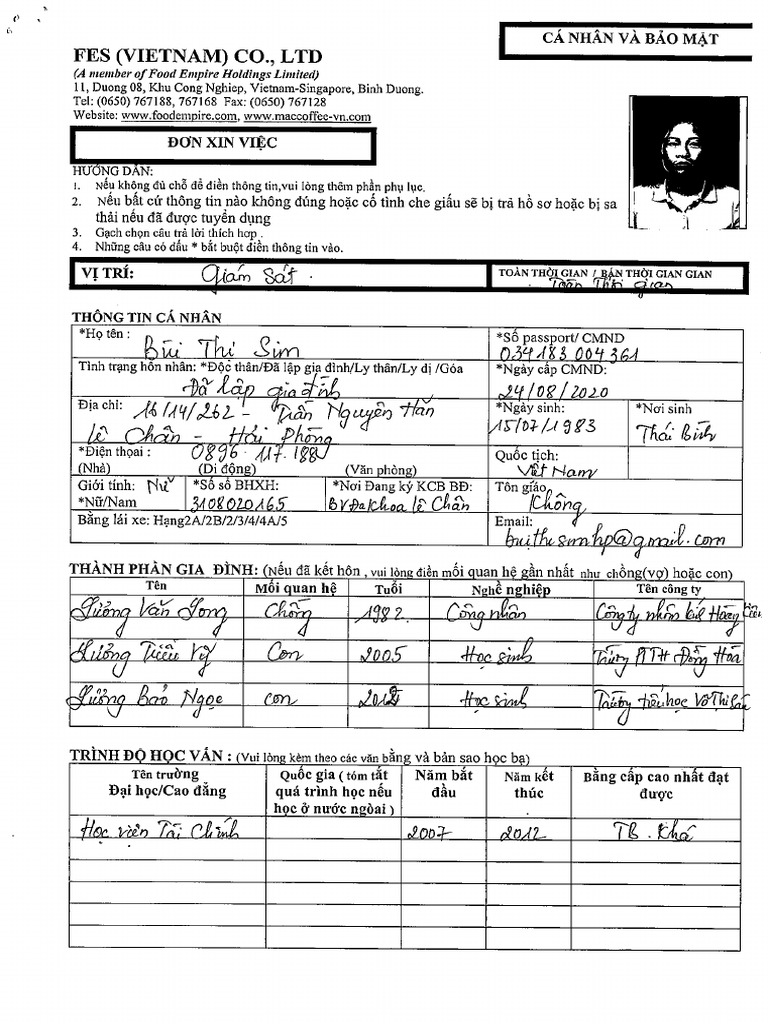 CÁ NHÂN VÀ BẢO MẬT
FES (VIETNAM) CO., LTD
(A member of Food Empire Holdings Limited)
11, Duong 08, Khu Cong Nghiep, Vietnam-Singapore, Binh Duong.
Tel: (0650) 767188, 767168 Fax: (0650) 767128
Website: www.foodempire.com, www.maccoffee-vn.com
ĐƠN XIN VIỆC
HƯỚNG DẪN:
1. Nếu không đủ chỗ để điền thông tin,vui lòng thêm phần phụ lục.
2. Nếu bất cứ thông tin nào không đúng hoặc cố tình che giấu sẽ bị trả hồ sơ hoặc bị sa
thải nếu đã được tuyển dụng
3. Gạch chọn câu trả lời thích hợp .
4. Những câu có dấu * bắt buột điền thông tin vào.
VỊ TRÍ: Giám sát .
TOÀN THỜI GIAN / BÁN THỜI GIAN GIAN
Toàn Thời gian
THÔNG TIN CÁ NHÂN
*Họ tên : Bùi Thị Sim
*Số passport/ CMND
034183 004361
Tình trạng hôn nhân: *Độc thân/Đã lập gia đình/Ly thân/Ly dị /Góa
Đã lập gia đình
*Ngày cấp CMND:
24/08/2020
Địa chỉ: 16/14/262 - Trần Nguyên Hãn
Lê Chân - Hải Phòng
*Ngày sinh: *Nơi sinh
15/07/1983 Thái Bình
*Điện thoại : 0896 117.188
(Nhà) (Di động) (Văn phòng)
Quốc tịch:
Việt Nam
Giới tính: Nữ *Số sổ BHXH: *Nơi Đang ký KCB BĐ:
*Nữ/Nam 3108020165 BV Đa khoa Lê Chân
Tên giáo
Không
Bằng lái xe: Hạng2A/2B/2/3/4/4A/5
Email:
buithisimhp@gmail.com
THÀNH PHẦN GIA ĐÌNH: (Nếu đã kết hôn , vui lòng điền mối quan hệ gần nhất như chồng(vợ) hoặc con)
Tên Mối quan hệ Tuổi Nghề nghiệp Tên công ty
Lương Văn Long Chồng 1982 Công nhân Công ty nhôm
Lương Tiểu Vy Con 2005 Học sinh Trường PTTH Đồng Hòa
Lương Bảo Ngọc con Học sinh Trường tiểu học Võ Thị Sáu
TRÌNH ĐỘ HỌC VẤN : (Vui lòng kèm theo các văn bằng và bản sao học bạ)
Tên trường Quốc gia ( tóm tắt Năm bắt Năm kết Bằng cấp cao nhất đạt
Đại học/Cao đẳng quá trình học nếu đầu thúc được
học ở nước ngoài )
Học viện Tài Chính 2007 2012 TB. Khá